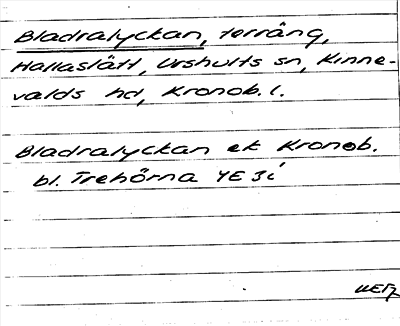 Bladralyckan, terräng,
Hallaslätt, Urshults sn, Kinne-
valds hd, Kronob. l.
Bladralyckan ek Kronob.
bl. Trehörna YE 3i